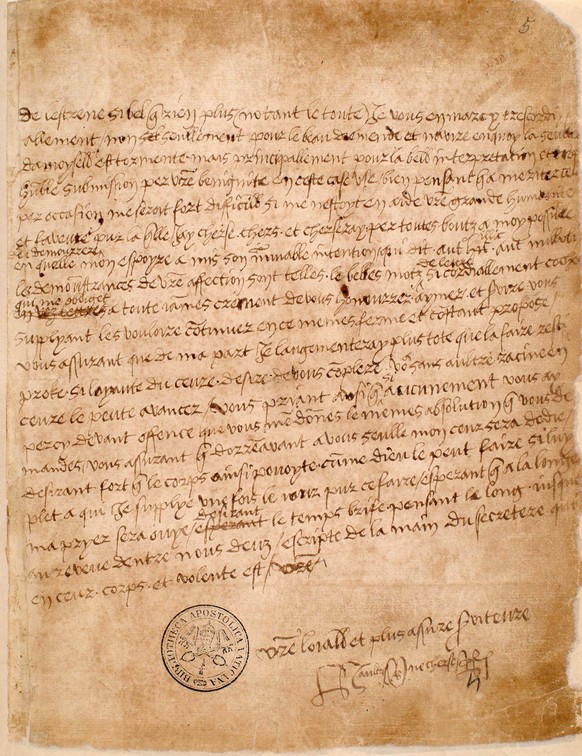 5
De lestrene si bel q rien plus (notant le toute) Je vous en marcy trescordi
allement / non seullement pour le beau et navire en quoy la seulette
damoyselle est tormente mais principallement pour la bell interpretation et
humble submission per vre benignite en ceste case use / bien pensant q a meriter cela
per occasion me seroit fort dificille si me nestoyt en aide vre grande humanite
et faveure pour la quelle Jay cherse chers et cherseray per toutes bontes a moy possible
de demourrere
en quelle mon espoyre a mis son immuable intention qui dit aut illic aut nullibi
les demonstrances de vre affection sont telles les belles mots si cordiallement
qui me obliget
a toute iames vrement de vous honnourrer aymer et servire vous
suppliant les vouloire continuer en ce memes ferme et constant propose
vous assurant que de ma part Je laugementeray plus tote que la faire reci
proke si loyaute du ceure desire de vous complere
ceure le peute avancer / vous priant aussi q si aucunement vous ay
percy devant offence que vous me donnes le memes absolution q vous de
mandes / vous assurant q dorrenavant a vous seulle mon ceur sera dedie
desirant fort q le corps ainsi pouoyte come dieu le peut faire si luy
plet a qui Je supplye une fois le iour pur ce faire / esperant q a la longe
ma pryer sera ouye / desirant le temps brife pensant le long iusques
au reveue dentre nous deuz / escripte de la main du secretere qui
en ceur corps et volente est / vre
vre loiall et plus assure serviteure
H autre ne cherse R
BIBLIOTHECA APOSTOLICA VATICANA